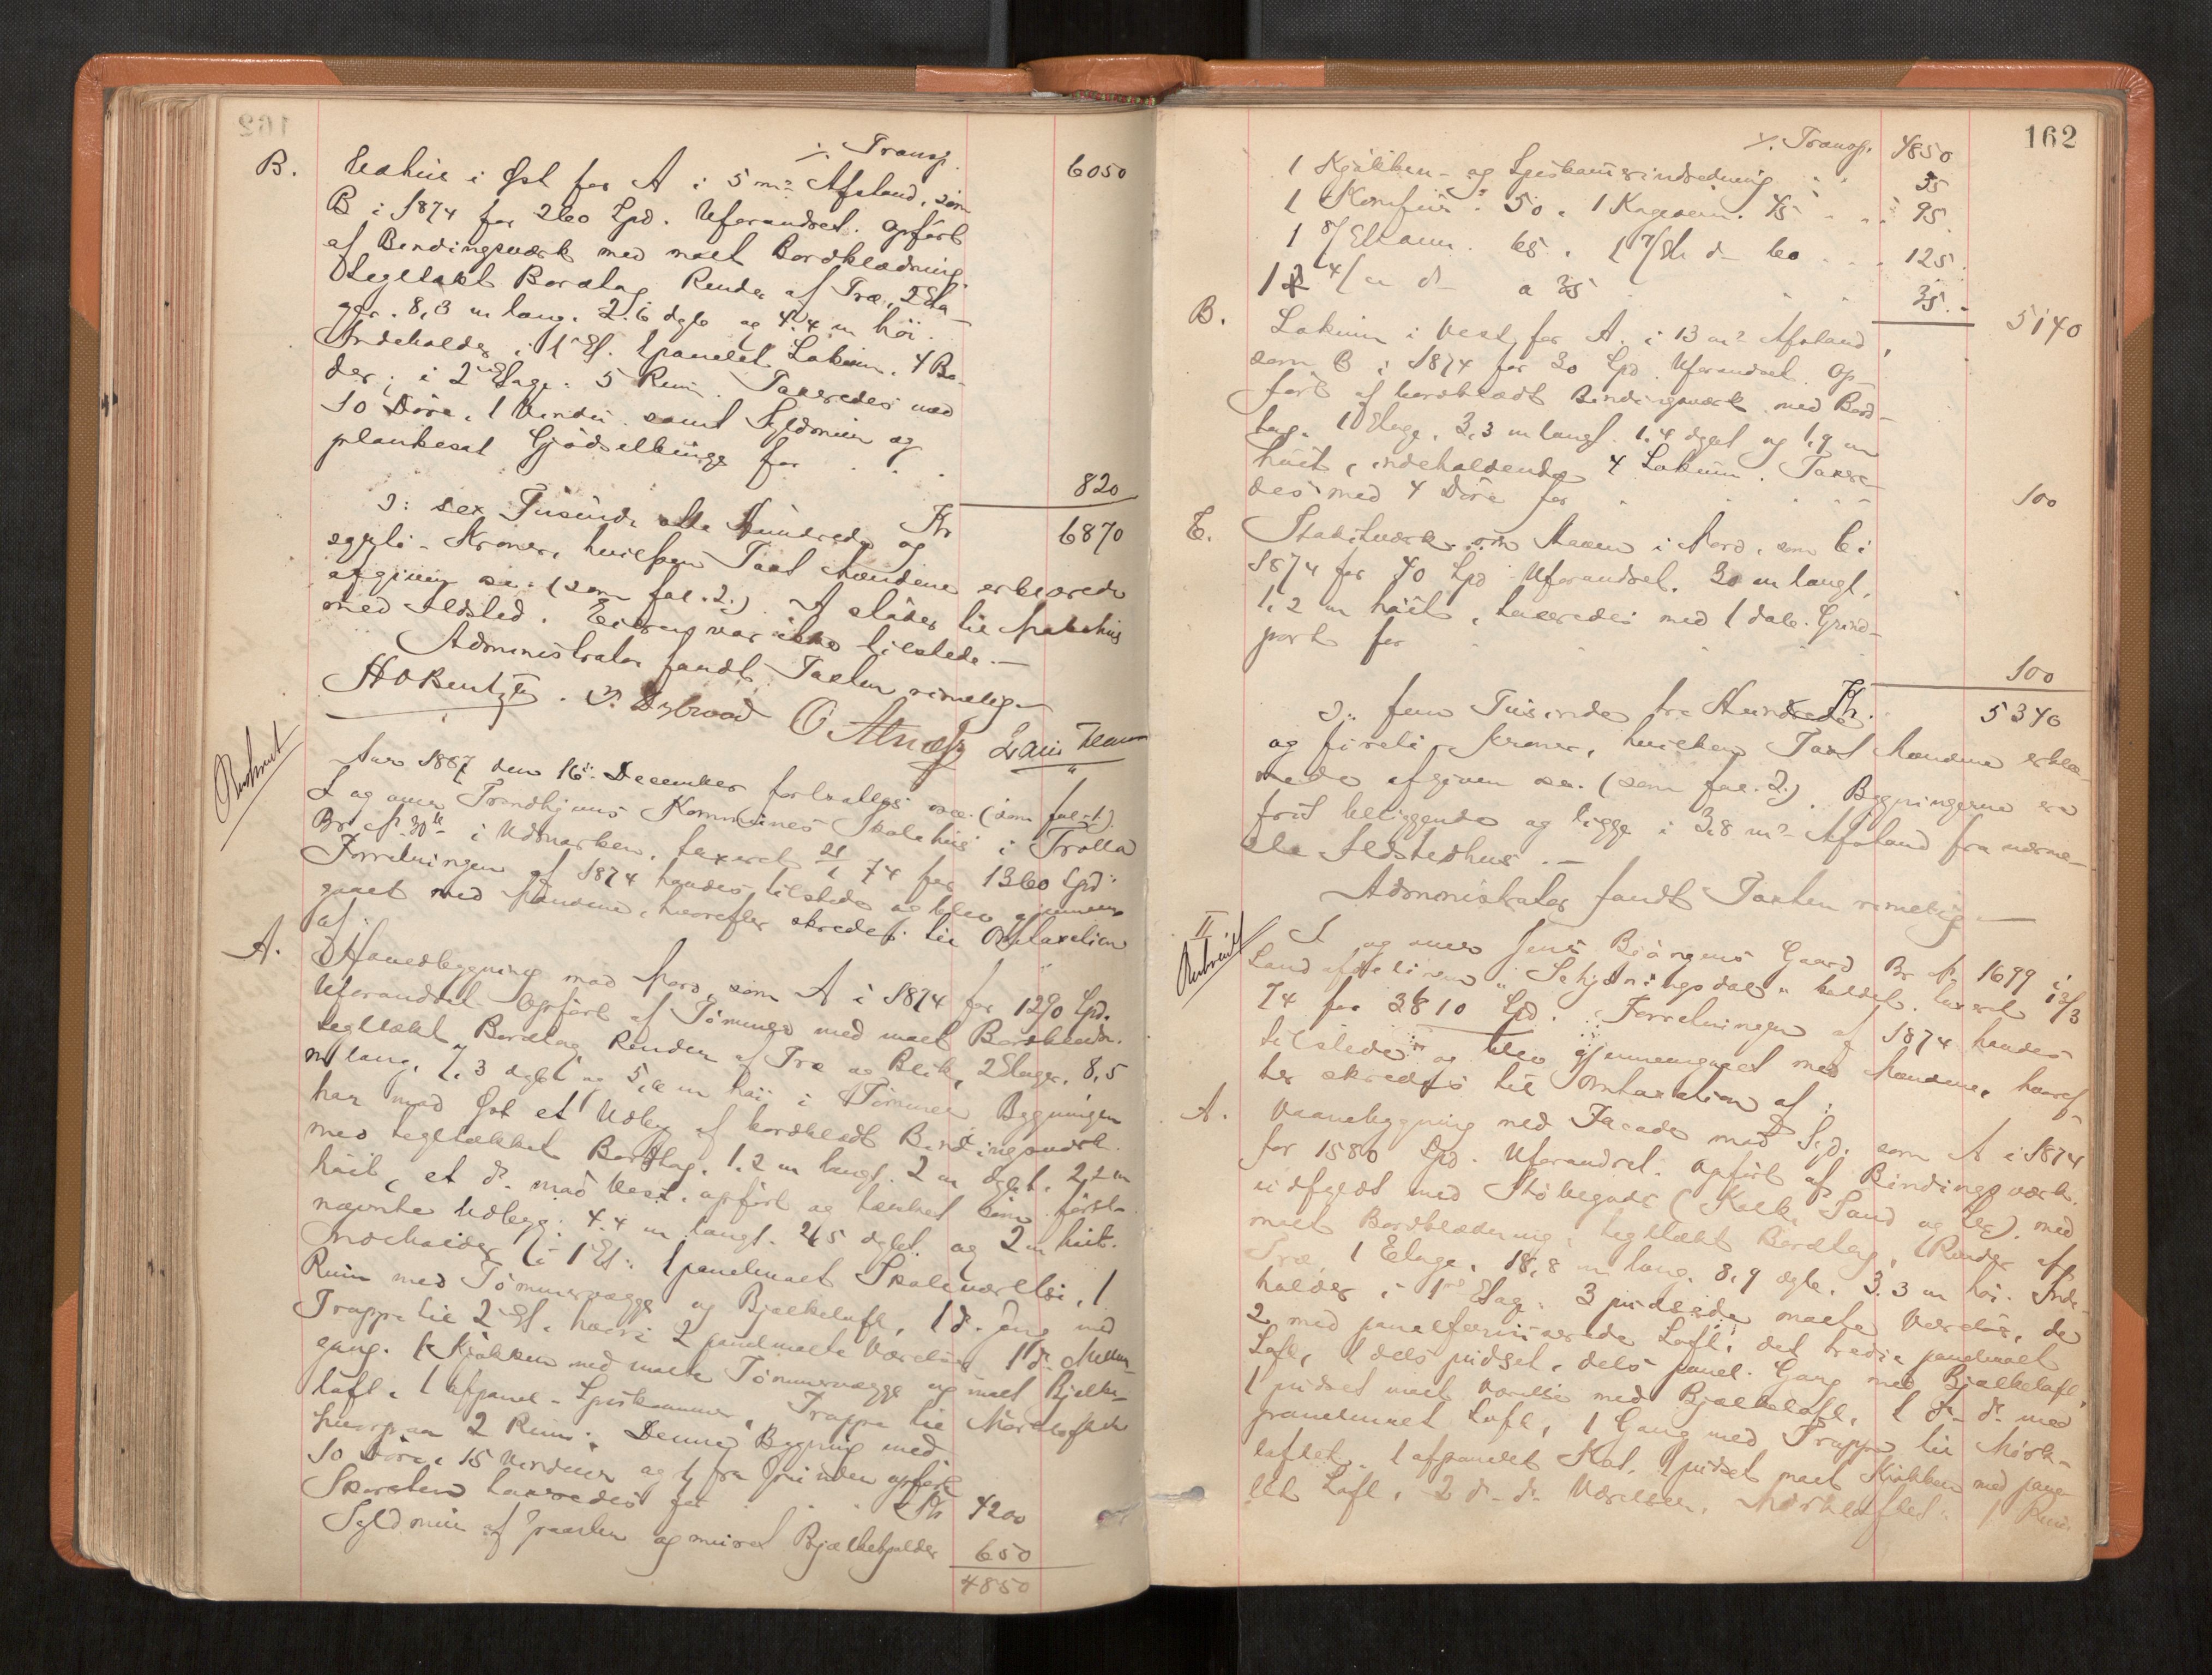 ./. Transp. 6050
B. Udhus i Øst for A i 5 m² Afstand, som
B i 1874 for 260 Spd. Uforandret. Opført
af Bindingsværk med malt Bordklædning
tegltækt Bordtag Render af Træ, 2 Eta-
ger. 8,3 m lang. 2.6 dyb og 4.4 m høi.
Indeholder i 1 Et. 1 panelet Lokum. 4 Bo-
der, i 2 Etage. 5 Rum. Taxeredes med
10 Döre, 1 Vindu samt Syldmur og
plankesat Gjødselbinge for . . . 820
Kr 6870
ɔ: sex Tusinde otte Hundrede og
sytti Kroner, hvilken Taxt Mændene erklærede
afgiven sa. (som fol. 2.) A stöder til Nabohus
med Ildsted. Eieren var ikke tilstede. —
Administrator fandt Taxten rimelig —
H O Bentzen . P. Dybwad O Alnæs
Aar 1887 den 16de December fortsattes (som fol. 1.)
I og over Trondhjems Kommunes Skolehus i Trolla
Br № 30 b i Udmarken, taxeret 21/1 74 for 1360 Spd.
Forretningen af 1874 havdes tilstede og blev gjennem-
gaaet med Mændene, hvorefter skredes til Omtaxation
af:
A. Hovedbygning mod Nord, som A i 1874 for 1290 Spd.
Uforandret. Opført af Tömmer med malt Bordklædn.
tegltækt Bordtag Render af Træ og Blik, 2 Etager. 8,5
m lang, 7,3 dyb og 5,6 m høi i Tömmer Bygningen
har mod Øst et Udbyg af bordklædt Bindingsværk
med tegltækket Bordtag. 1.2 m langt. 2 m dybt. 2,2 m
höit, et do. mod Vest. opført og tækket som först-
nævnte Udbygg. 4.4 m langt. 2,5 dybt og 2 m höit.
Indeholder i 1 Et: 1 panelmalt Skoleværelse, 1
Rum med Tömmervægge og Bjælkeloft, 1 do. Gang med
Trappe til 2 Et. hvori 2 panelmalte Værelser 1 do. Mellem-
gang. 1 Kjökken med malte Tömmervægge og malt Bjelke-
loft. 1 afpanel. Spiskammer, Trappe til Mörkloftet
hvorpaa 2 Rum. Denne Bygning med
10 Döre, 15 Vinduer og 1 fra Grunden opført
Skorsten taxeredes for . . . Kr 4200
Syldmur af Graasten og muret Bjælkekjelder 650
4850
162
./. Transp. 4850
1 Kjökken- og Spiskammerindredning . . 35
1 Komfur 50. 1 Kageovn. 45 . . 95.
1 8/Etovn. 65. 1 7/Et. do 60 . . . 125.
1 4/ do a 35 . . . 35. - 5140
B. Lokum i Vest for A. i 13 m² Afstand,
som B i 1874 for 30 Spd. Uforandret. Op-
ført af bordklædt Bindingsværk med Bord-
tag. 1 Etage. 3,3 m langt. 1.4 dybt og 1,9 m
höit, indeholdende 4 Lokum. Taxere-
des med 4 Döre for . . . 100
C. Stakitværk om Haven i Nord, som C i
1874 for 40 Spd Uforandret. 30 m langt,
1.2 m höit, taxeredes med 1 dob. Grind-
port for . . . 100
Kr. 5340
ɔ: fem Tusinde tre Hundrede
og firti Kroner, hvilken Taxt Mændene erklæ-
rede afgiven sa. (som fol. 2.). Bygningerne ere
frit beliggende og ligge i 3,8 m² Afstand fra nærme-
ste Ildstedhus. —
Administrator fandt Taxten rimelig —
II I og over Jens Bjørgens Gaard Br № 1699 i
Landafdelingen " Schjötningsdal " kaldet. taxeret 13/3
74 for 3810 Spd. Forretningen af 1874 havdes
tilstede og blev gjennemgaaet med Mændene, hvoref-
ter skredes til Omtaxation af:
A. Vaanebygning med Facade mod Syd. som A i 1874
for 1580 Spd. Uforandret. Opført af Bindingsværk
udfyldt med Støbegods (Kalk, Sand og Ler). med
malt Bordklædning, tegltækt Bordtag, Render af
Træ, 1 Etage. 18,8 m lang. 8,9 dyb. 3.3 m høi. Inde-
holder i 1re Etag. 3 pudsede malte Værelser, de
2 med panelferniserede Loft, det tredie panelmalt
Loft, 1 dels pudset, dels panel. Gang med Bjælkeloft,
1 pudset malt Værelse med Bjælkeloft, 1 do. do. med
panelmalt Loft, 1 Gang med Trappe til Mörk-
loftet. 1 afpanelet Kot. 1 pudset malt Kjökken med pane-
let Loft, 2 do. do. Værelser. Mörkloftet: 1 Rum.